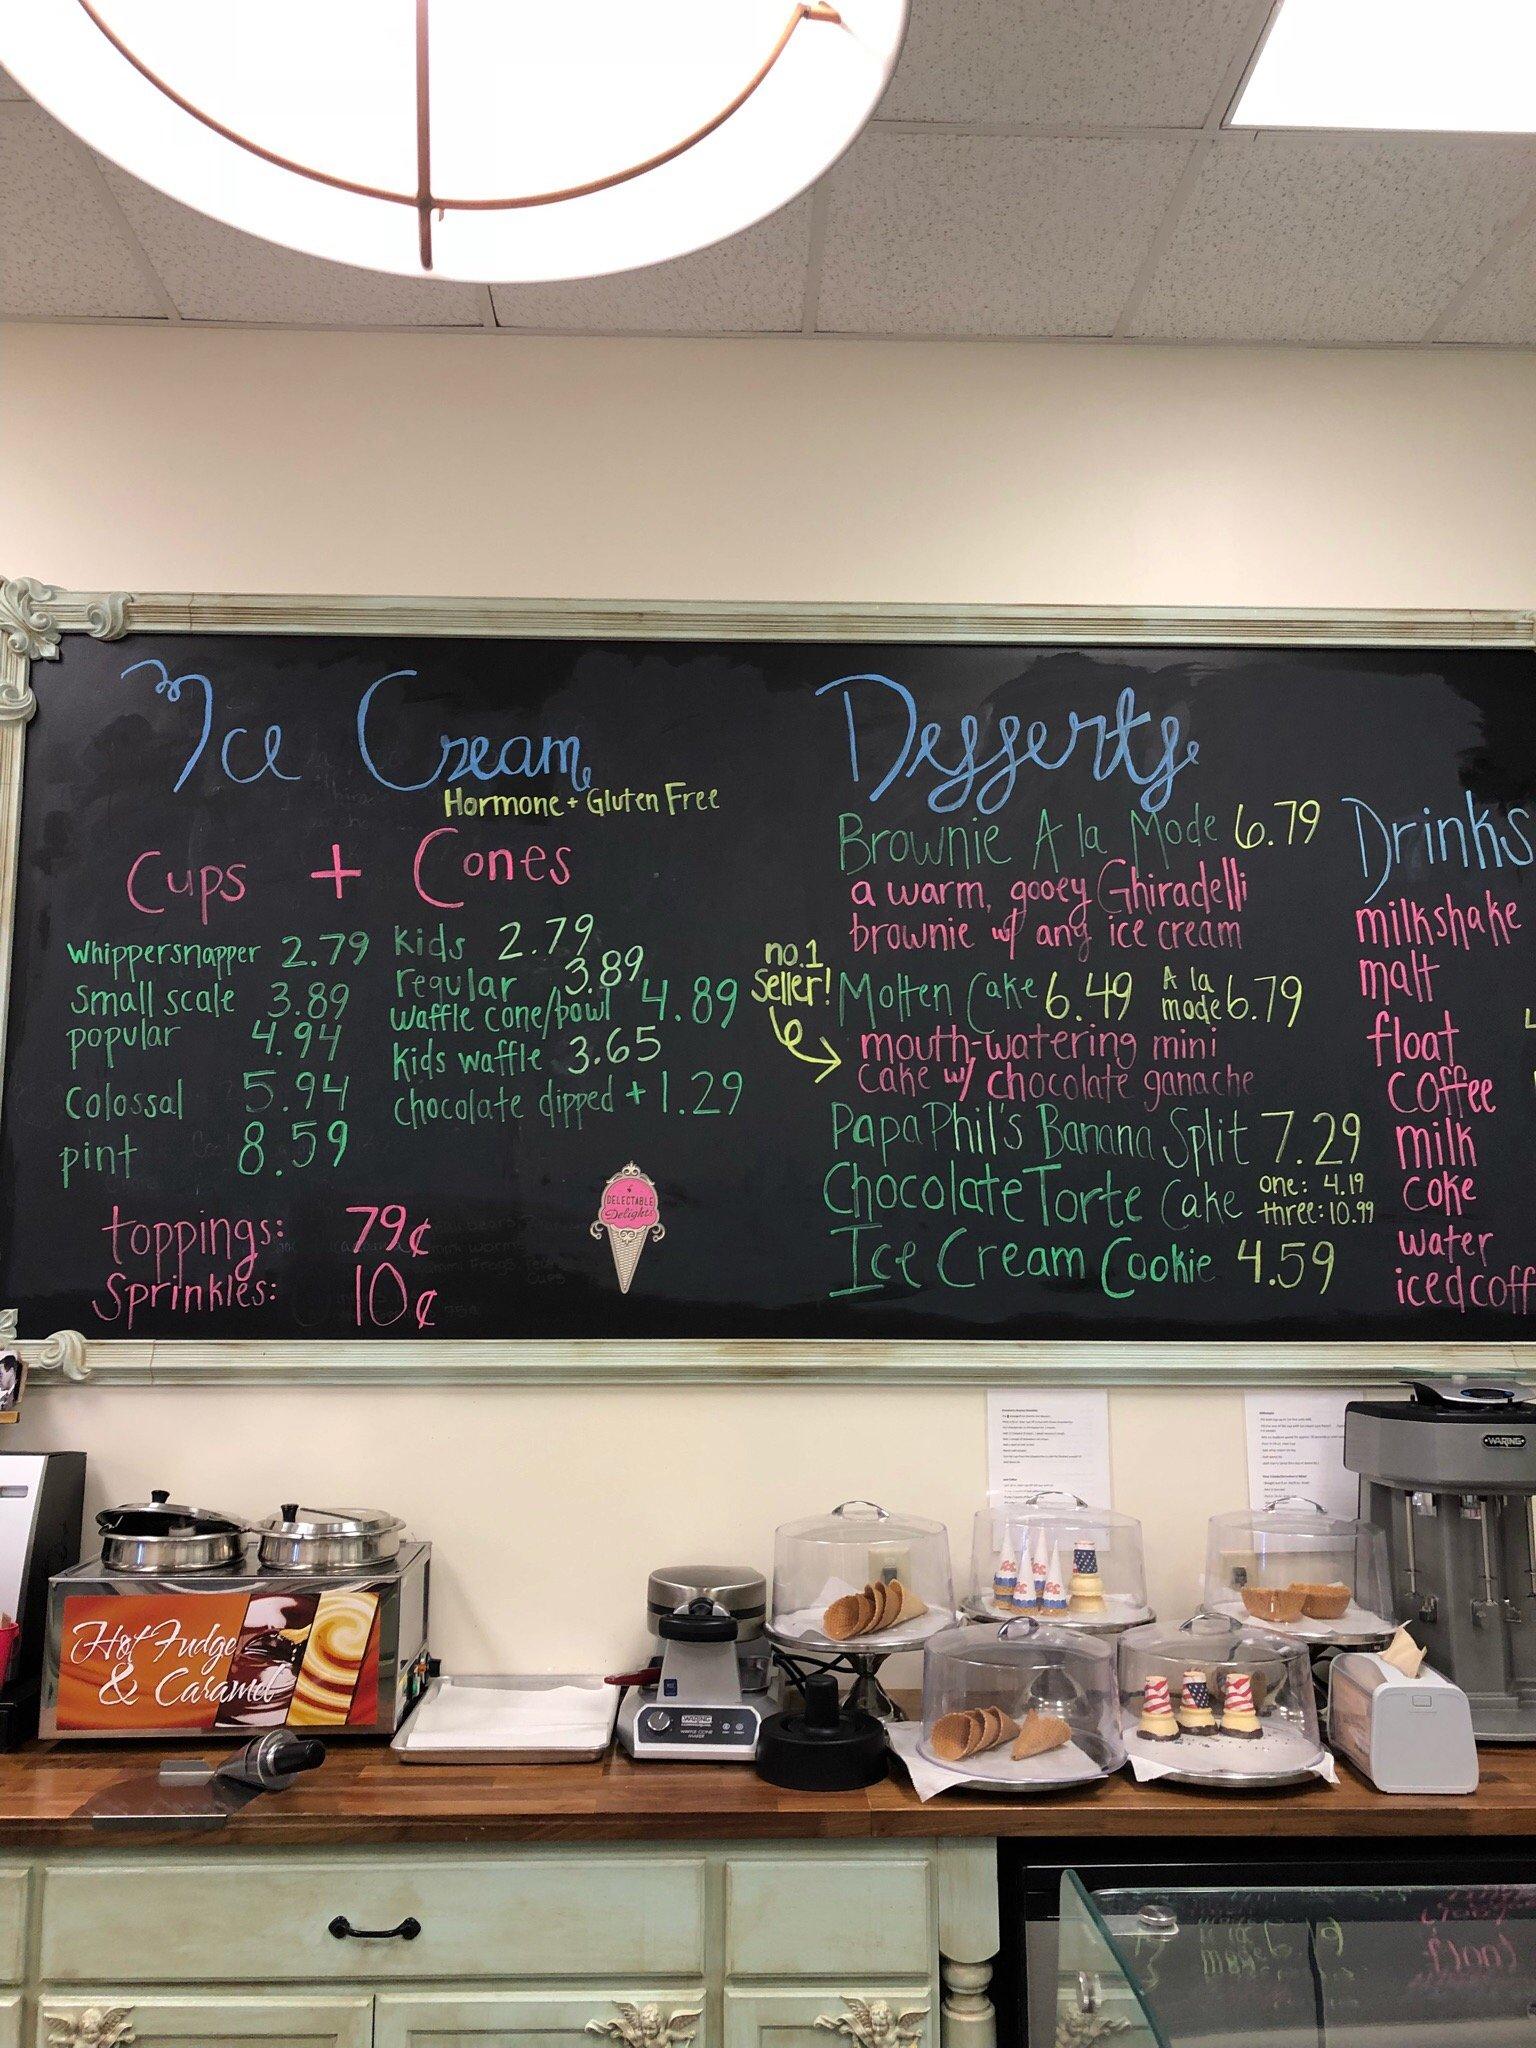 Ice Cream
Hormone + Gluten Free
Cups + Cones
Whippersnapper 2.79
Small scale 3.89
popular 4.94
Colossal 5.94
pint 8.59
kids 2.79
regular 3.89
waffle cone/bowl 4.89
kids waffle 3.65
chocolate dipped + 1.29
toppings: 79¢
Sprinkles: 10¢
DELECTABLE
Delights
Desserts
Brownie A la Mode 6.79
a warm, gooey Ghiradelli
brownie w/ any ice cream
no.1
Seller!
Molten Cake 6.49 A la mode 6.79
mouth-watering mini
cake w/ chocolate ganache
Papa Phil's Banana Split 7.29
Chocolate Torte Cake one: 4.19
three: 10.99
Ice Cream Cookie 4.59
Drinks
milkshake
malt
float
coffee
milk
coke
water
iced coff
Hot Fudge
& Caramel
WARING
WAFFLE CONE
MAKER
WARING